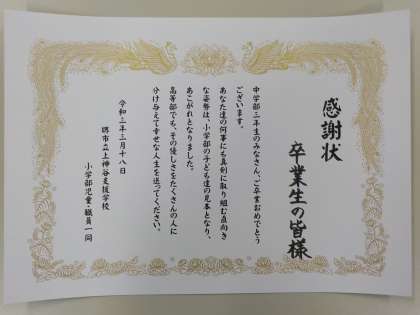 感謝状
卒業生の皆様
中学部三年生のみなさん、ご卒業おめでとう
ございます。
あなた達の何事にも真剣に取り組む直向き
な姿勢は、小学部の子ども達の見本となり、
あこがれとなりました。
高等部でも、その優しさをたくさんの人に
分け与えて幸せな人生を送ってください。
令和三年三月十八日
堺市立上神谷支援学校
小学部児童・職員一同